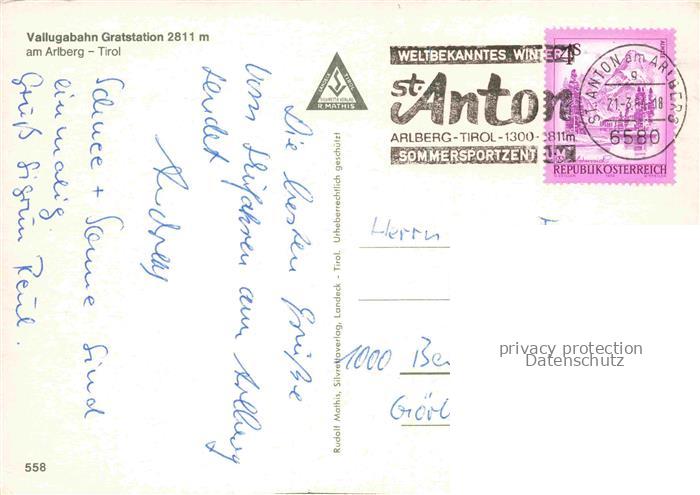 Vallugabahn Gratstation 2811 m
am Arlberg – Tirol
Die besten Grüße
vom Skifahren am Arlberg
sendet
Andreas
Schnee + Sonne sind
einmalig
Gruß Sigrun Keul.
R. MATHIS
Rudolf Mathis, Silvrettaverlag, Landeck - Tirol. Urheberrechtlich geschützt!
WELTBEKANNTES WINTER
St. Anton
ARLBERG-TIROL-1300-2811m
SOMMERSPORTZENT
4S
REPUBLIK ÖSTERREICH
ST. ANTON am ARLBERG
6580
Herrn
1000 Ber
Görl
privacy protection
Datenschutz
558